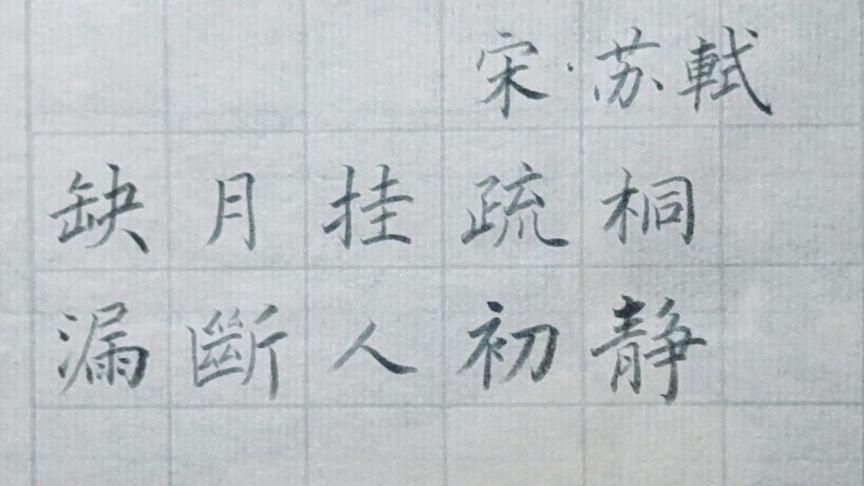 宋·苏軾
缺月挂疏桐
漏斷人初静